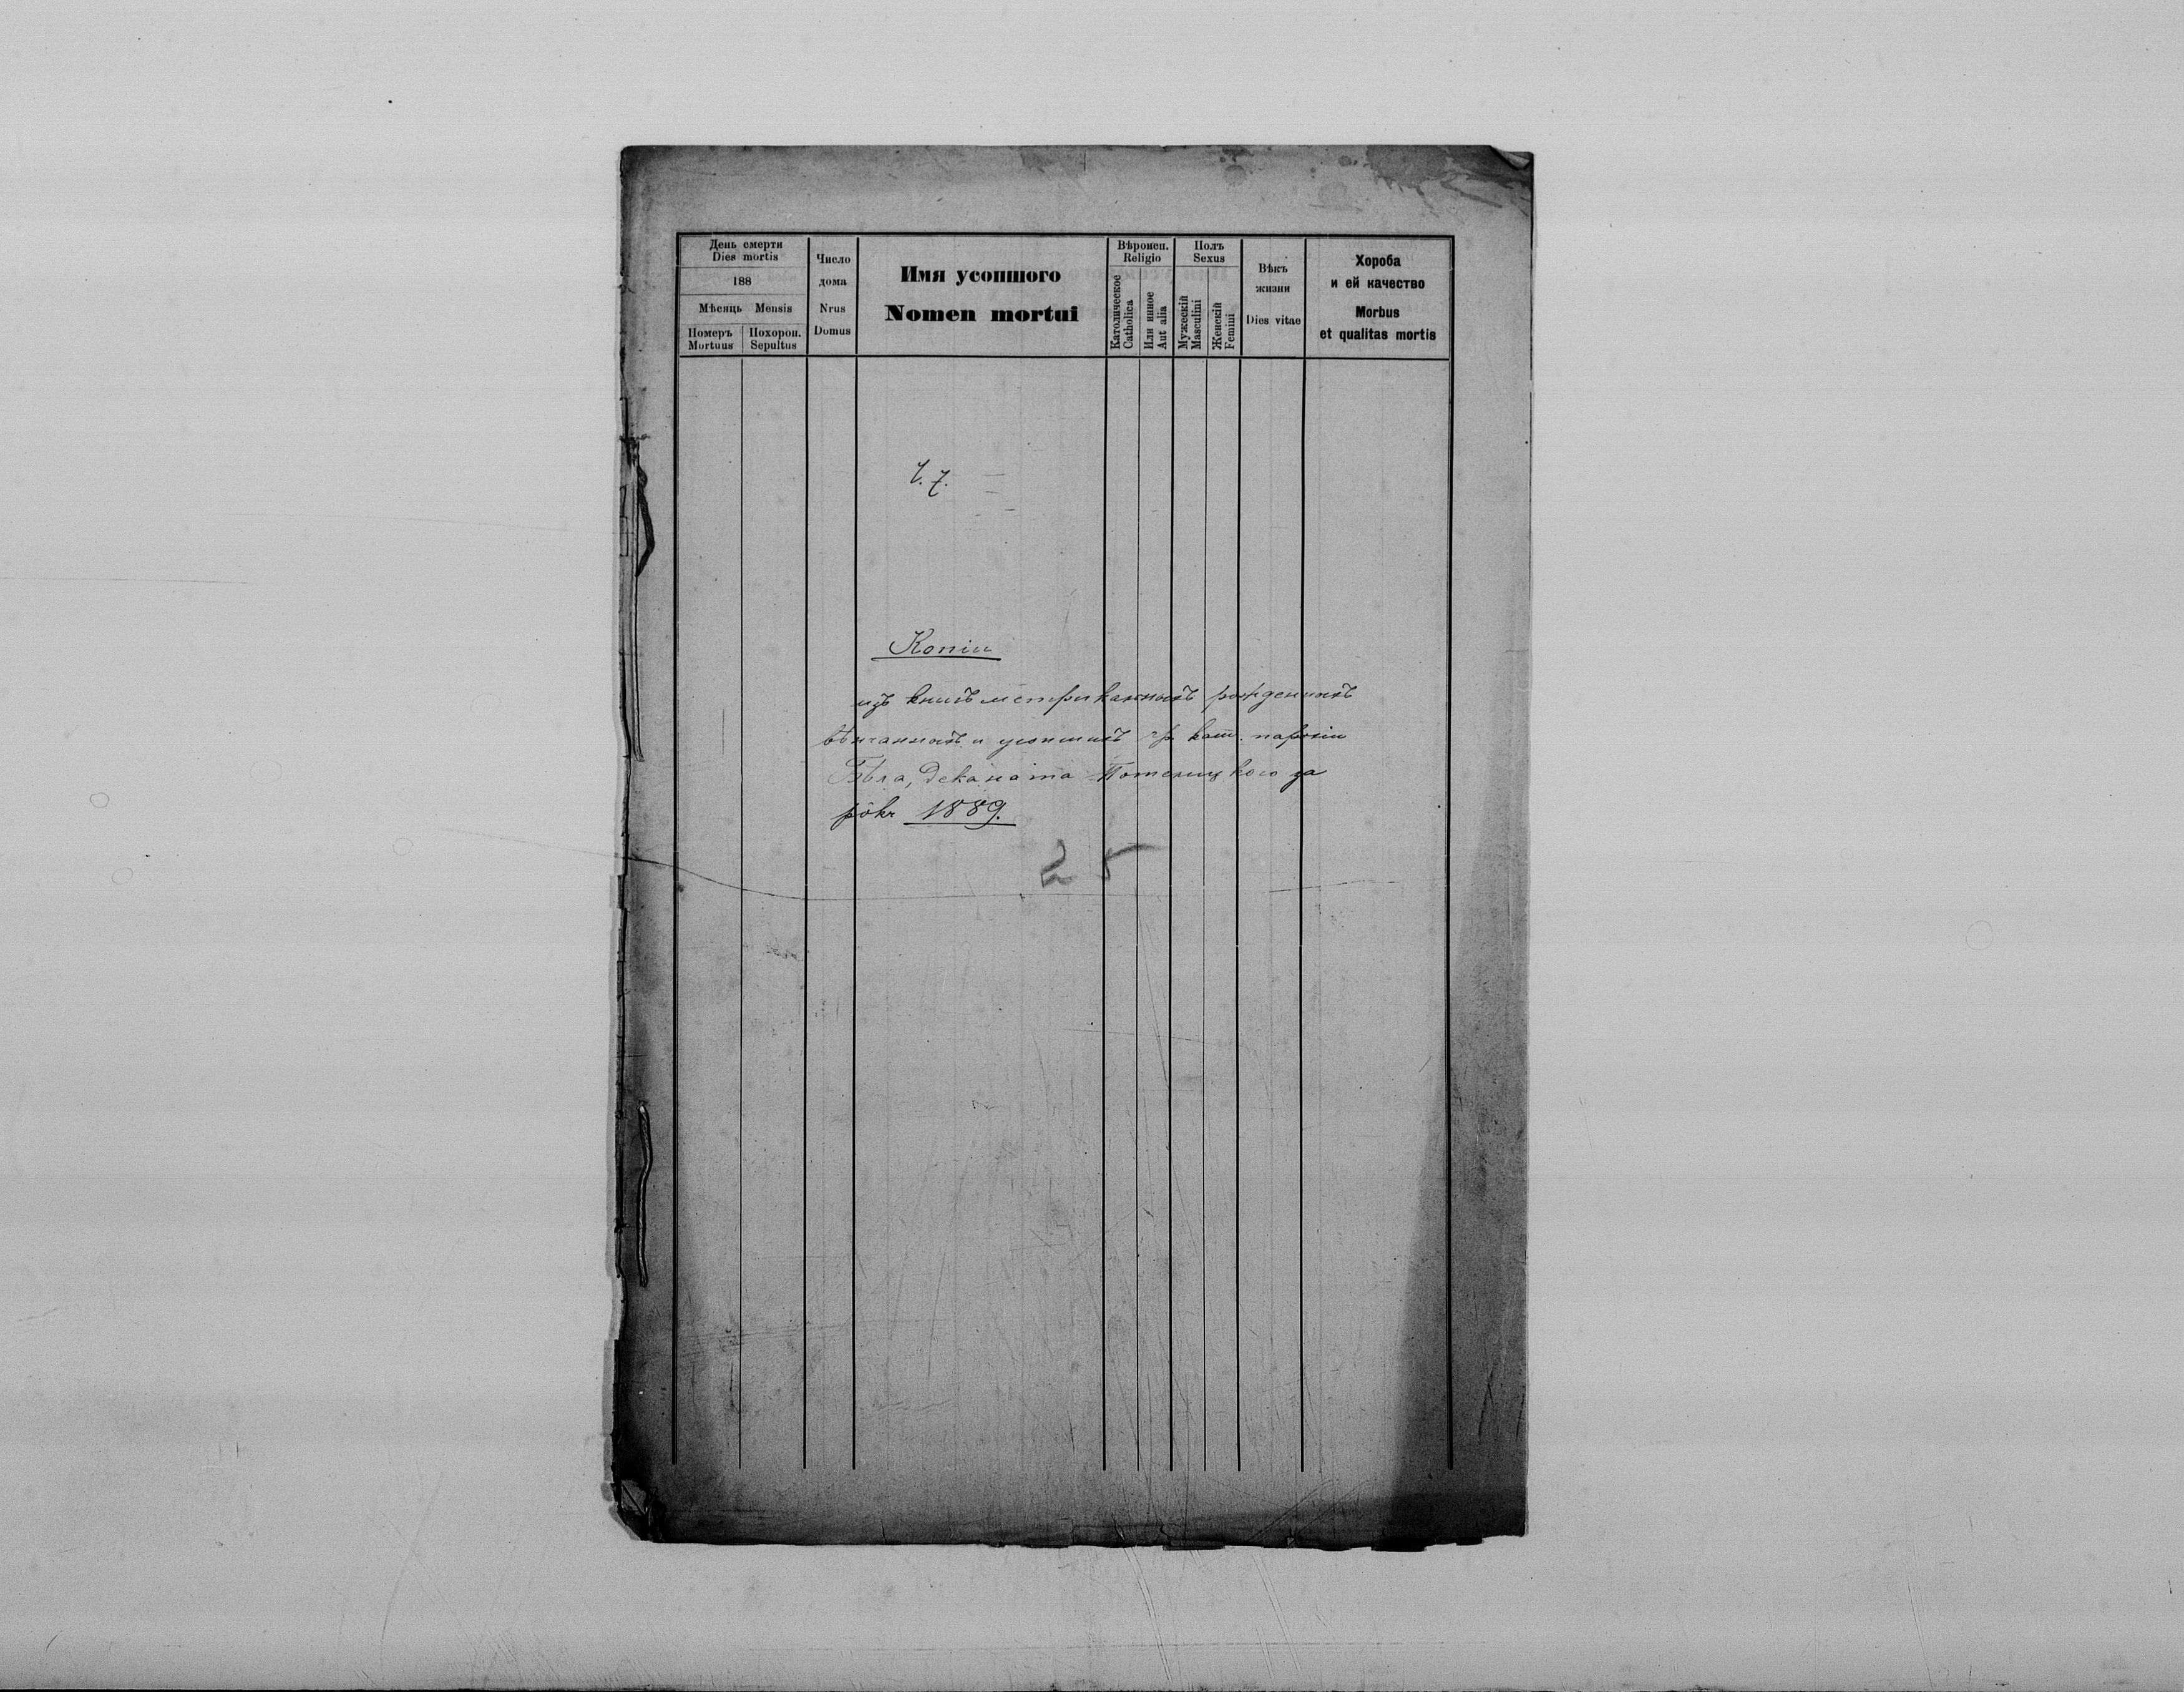 День смерти
Dies mortis
188
Мѣсяць Mensis
Померъ Похорон.
Mortuus Sepultus
Число
дома
Nrus
Domus
Имя усопшого
Nomen mortui
Вѣроисп.
Religio
Католическое
Catholica
Или инное
Aut alia
Полъ
Sexus
Мужескій
Masculini
Женскій
Femini
Вѣкъ
жизни
Dies vitae
Хороба
и ей качество
Morbus
et qualitas mortis
Ч. 7.
Копія
изъ книгъ метрикальныхъ рожденныхъ
вѣнчанныхъ и усопшихъ гр. кат. парохіи
Бѣла, Деканата Потелицкого за
рôкъ 1889.
25